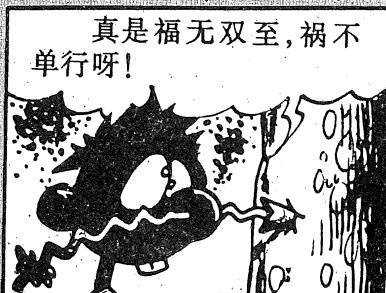 真是福无双至，祸不
单行呀！